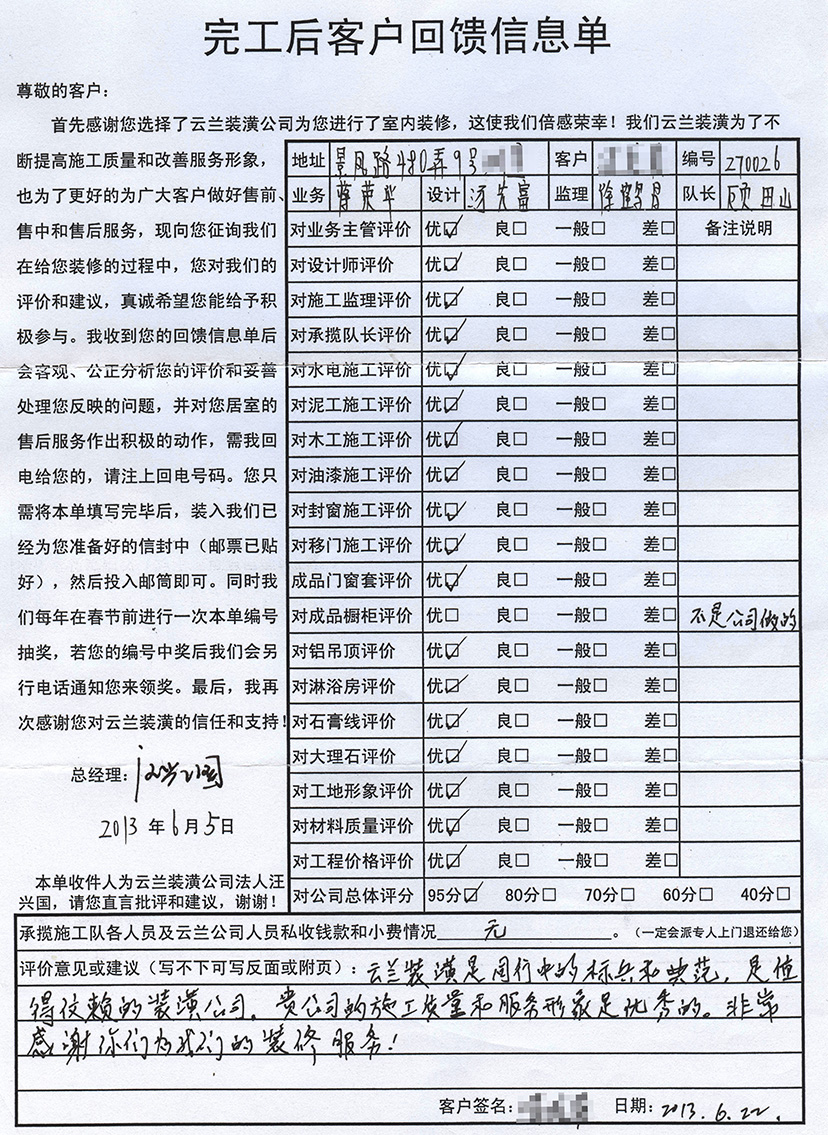 完工后客户回馈信息单
尊敬的客户：
首先感谢您选择了云兰装潢公司为您进行了室内装修，这使我们倍感荣幸！我们云兰装潢为了不
断提高施工质量和改善服务形象，
也为了更好的为广大客户做好售前、
售中和售后服务，现向您征询我们
在给您装修的过程中，您对我们的
评价和建议，真诚希望您能给予积
极参与。我收到您的回馈信息单后
会客观、公正分析您的评价和妥善
处理您反映的问题，并对您居室的
售后服务作出积极的动作，需我回
电给您的，请注上回电号码。您只
需将本单填写完毕后，装入我们已
经为您准备好的信封中（邮票已贴
好），然后投入邮筒即可。同时我
们每年在春节前进行一次本单编号
抽奖，若您的编号中奖后我们会另
行电话通知您来领奖。最后，我再
次感谢您对云兰装潢的信任和支持！
总经理：汪兴国
2013 年 6 月 5 日
本单收件人为云兰装潢公司法人汪
兴国，请您直言批评和建议，谢谢！
地址 景凤路480弄9号 客户 编号 270026
业务 曹荣华 设计 汤先富 监理 徐鹤昌 队长 顾田山
对业务主管评价 优☑ 良□ 一般□ 差□ 备注说明
对设计师评价 优☑ 良□ 一般□ 差□
对施工监理评价 优☑ 良□ 一般□ 差□
对承揽队长评价 优☑ 良□ 一般□ 差□
对水电施工评价 优☑ 良□ 一般□ 差□
对泥工施工评价 优☑ 良□ 一般□ 差□
对木工施工评价 优☑ 良□ 一般□ 差□
对油漆施工评价 优☑ 良□ 一般□ 差□
对封窗施工评价 优☑ 良□ 一般□ 差□
对移门施工评价 优☑ 良□ 一般□ 差□
成品门窗套评价 优☑ 良□ 一般□ 差□
对成品橱柜评价 优□ 良□ 一般□ 差□ 不是公司做的
对铝吊顶评价 优☑ 良□ 一般□ 差□
对淋浴房评价 优☑ 良□ 一般□ 差□
对石膏线评价 优☑ 良□ 一般□ 差□
对大理石评价 优☑ 良□ 一般□ 差□
对工地形象评价 优☑ 良□ 一般□ 差□
对材料质量评价 优☑ 良□ 一般□ 差□
对工程价格评价 优☑ 良□ 一般□ 差□
对公司总体评分 95分☑ 80分□ 70分□ 60分□ 40分□
承揽施工队各人员及云兰公司人员私收钱款和小费情况 无 。（一定会派专人上门退还给您）
评价意见或建议（写不下可写反面或附页）：云兰装潢是同行中的标兵和典范，是值
得信赖的装潢公司。贵公司的施工质量和服务形象是优秀的。非常
感谢你们为我们的装修服务！
客户签名： 日期：2013.6.22.